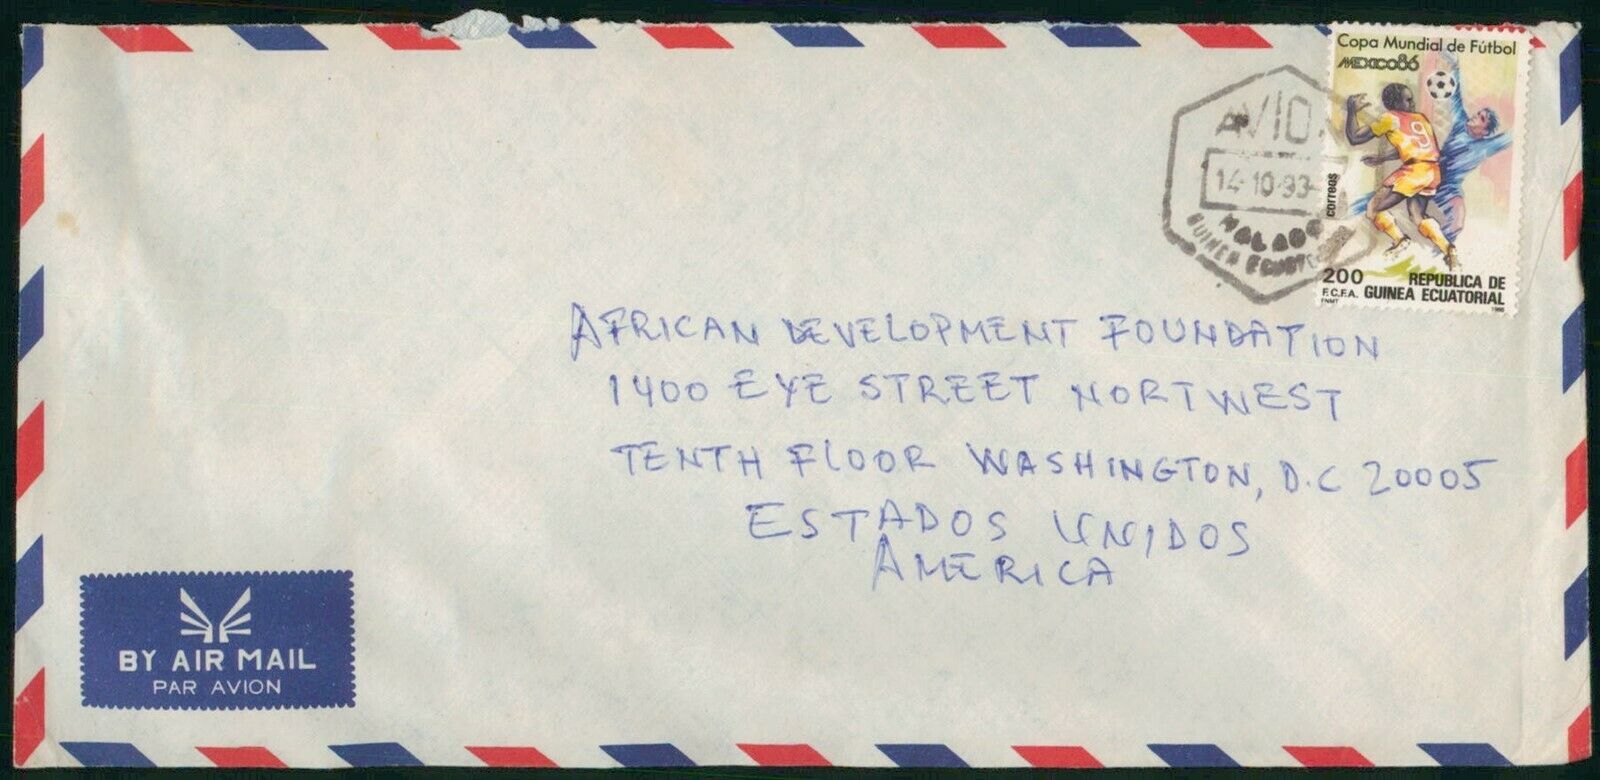 Copa Mundial de Fútbol
MEXICO86
correos
200 REPUBLICA DE
F.C.F.A. GUINEA ECUATORIAL
FNMT 1986
AVION
14-10-93
MALABO
GUINEA ECUATORIAL
AFRICAN DEVELOPMENT FOUNDATION
1400 EYE STREET NORTWEST
TENTH FLOOR WASHINGTON, D.C 20005
ESTADOS UNIDOS
AMERICA
BY AIR MAIL
PAR AVION
9